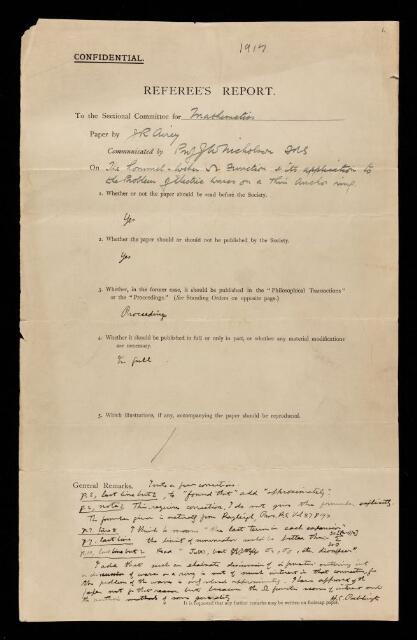 1917
1.
CONFIDENTIAL.
REFEREE'S REPORT.
To the Sectional Committee for Mathematics
Paper by J R Airey
Communicated by Prof J W Nicholson FRS
On The Lommel-Weber Function & its application to
the Problem of Electric Waves on a Thin Anchor ring.
1. Whether or not the paper should be read before the Society.
Yes
2. Whether the paper should or should not be published by the Society.
Yes
3. Whether, in the former case, it should be published in the "Philosophical Transactions"
or the "Proceedings." (See Standing Orders on opposite page.)
Proceedings
4. Whether it should be published in full or only in part, or whether any material modifications
are necessary.
In full
5. Which illustrations, if any, accompanying the paper should be reproduced.
General Remarks. a few corrections.
p. 2, last line but 2, to "found that" add "approximately".
p. 2, note This requires correction, I do not give the formula explicitly
The formula given is in Rayleigh,
p. 7, line 8 I think is meant "the last term in each expansion"
p. 7, last line the limit of summation would be better
last line but 2 Read
I add that such an abstract discussion of
of waves on a ring is not of much interest in that connection, for
the problem of the waves is only approximately. I have approved the
paper not for that reason but because the function seems of interest and
the method of some generality.
It is requested that any further remarks be written on foolscap paper.